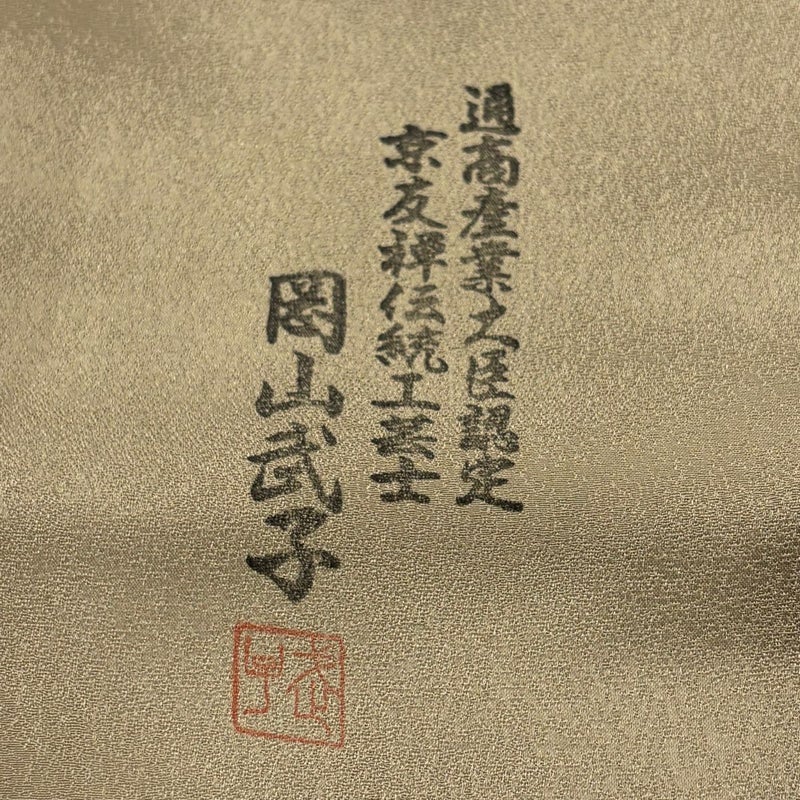 通商産業大臣認定
京友禅伝統工芸士
岡山武子
武子